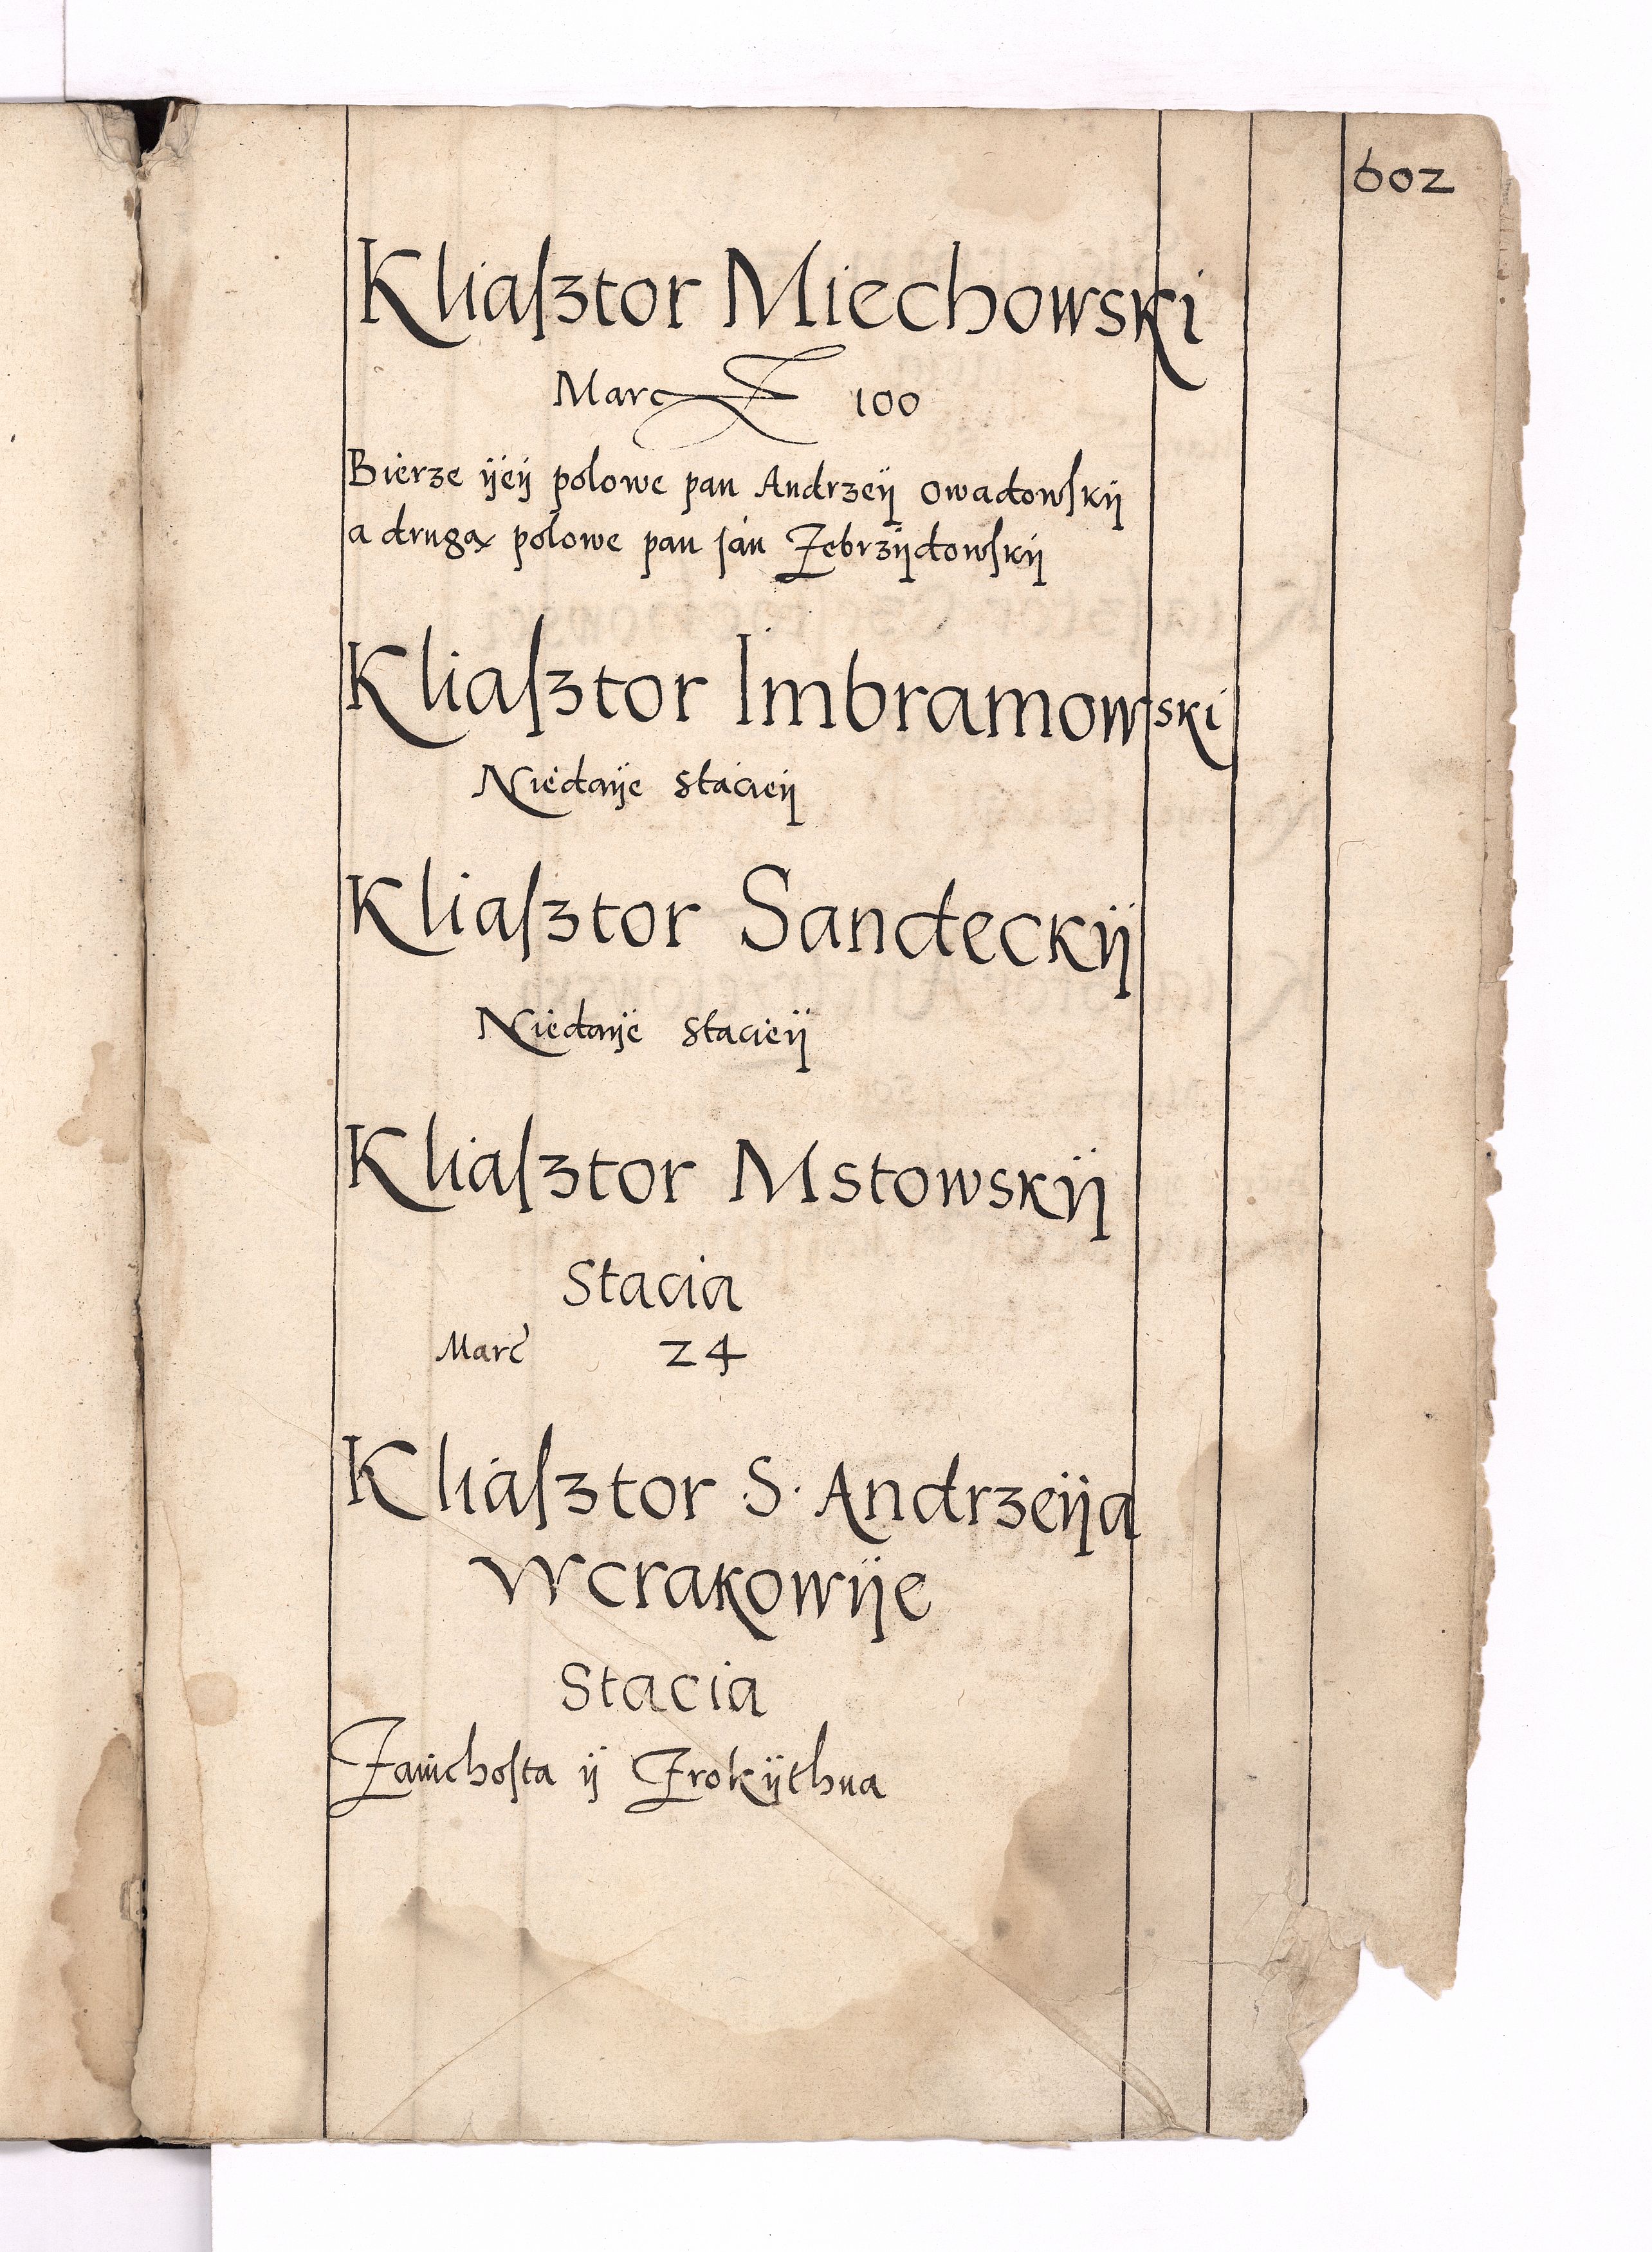 602
Kliaſztor Miechowski
Marc 100
Bierze ÿeÿ polowe pan Andrzeÿ Owadowſkÿ
a drugą polowe pan ſan Zebrzÿdowſkÿ
Kliaſztor Imbramowski
Niedaÿe Stacieÿ
Kliaſztor Sandeckÿ
Niedaÿe Stacieÿ
Kliaſztor Mstowskÿ
Stacia
Marc 24
Kliaſztor S. Andrzeÿa
Wcrakowÿe
Stacia
Zawichoſta ÿ Zrokÿthna